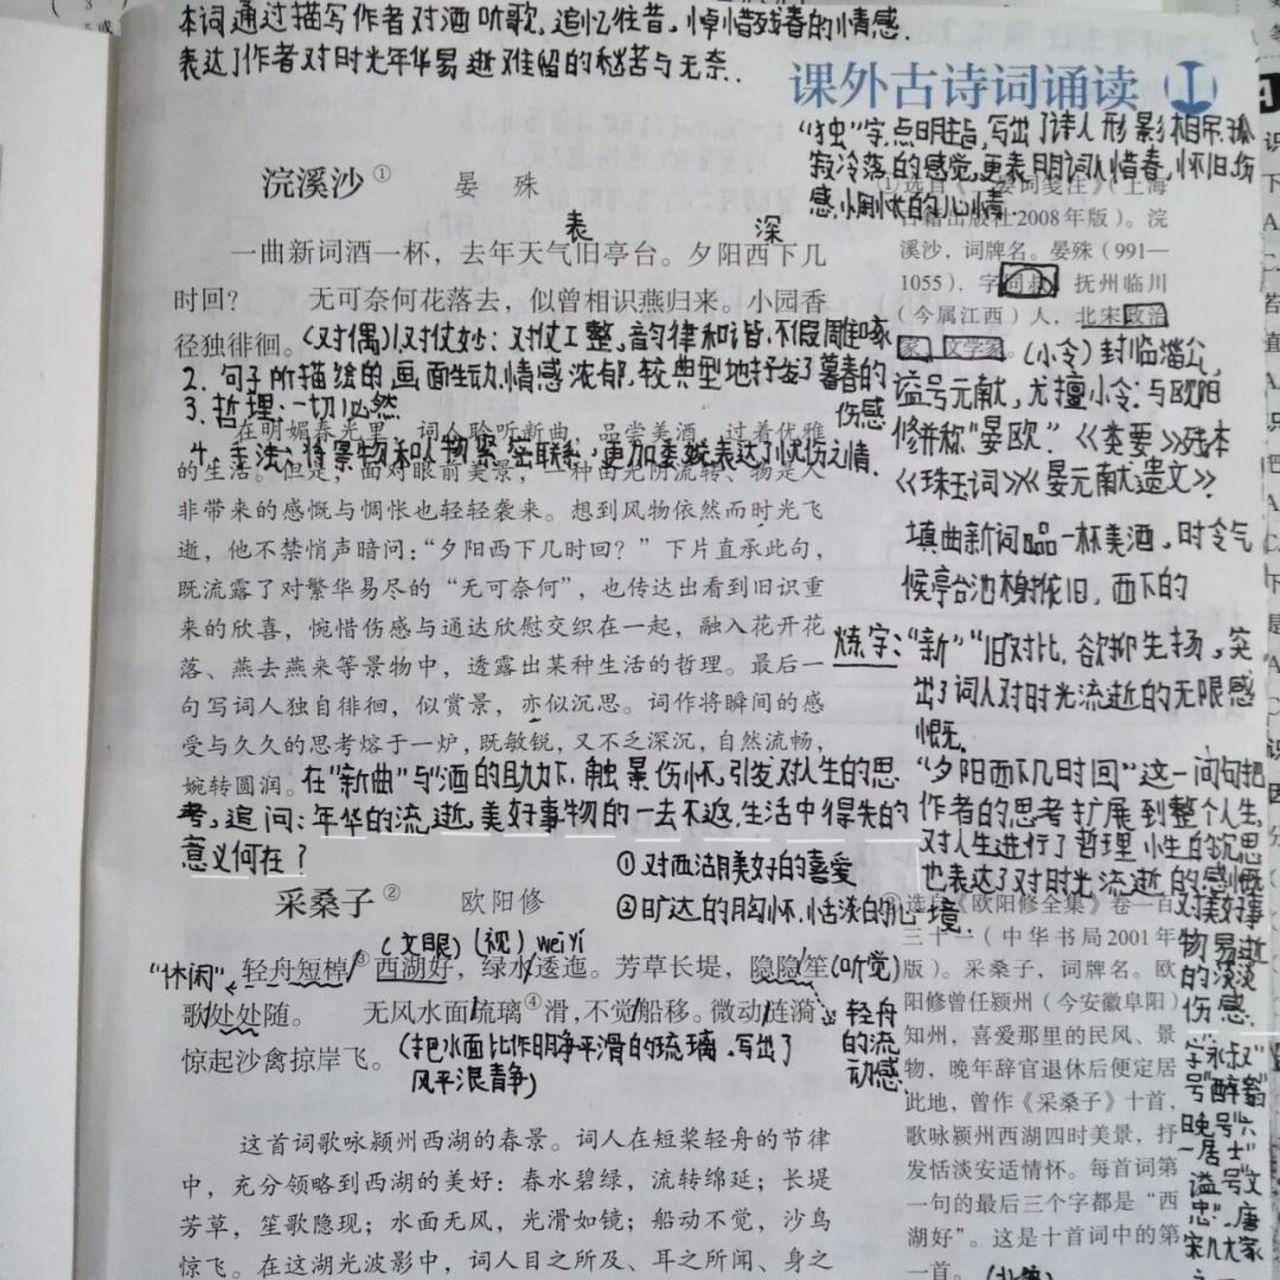 本词通过描写作者对酒听歌,追忆往昔,悼惜残春的情感.
表达了作者对时光年华易逝难留的愁苦与无奈.
课外古诗词诵读
“独”字,点明主旨,写出了诗人形影相吊,孤
寂冷落的感觉,更表明词人惜春,怀旧,伤
感,惆怅的心情.
浣溪沙① 晏 殊
表 深
一曲新词酒一杯,去年天气旧亭台。夕阳西下几
时回? 无可奈何花落去,似曾相识燕归来。小园香
径独徘徊。(对偶)1.对仗妙:对仗工整,音韵律和谐,不假雕琢
2. 句子所描绘的画面生动,情感浓郁,较典型地抒发了暮春的
伤感
3. 哲理:一切必然
4. 手法:将景物和人物紧密联系,更加委婉表达了忧伤之情.
在明媚春光里,词人聆听新曲,品尝美酒,过着优雅
的生活。但是,面对眼前美景,一种由光阴流转、物是人
非带来的感慨与惆怅也轻轻袭来。想到风物依然而时光飞
逝,他不禁悄声暗问:“夕阳西下几时回?”下片直承此句,
既流露了对繁华易尽的“无可奈何”,也传达出看到旧识重
来的欣喜,惋惜伤感与通达欣慰交织在一起,融入花开花
落、燕去燕来等景物中,透露出某种生活的哲理。最后一
句写词人独自徘徊,似赏景,亦似沉思。词作将瞬间的感
受与久久的思考熔于一炉,既敏锐,又不乏深沉,自然流畅,
婉转圆润。在“新曲”与“酒”的助力下,触景伤怀,引发对人生的思
考,追问:年华的流逝,美好事物的一去不返,生活中得失的
意义何在?
① 选自《 词笺注》(上海
古籍出版社2008年版)。浣
溪沙,词牌名。晏殊(991—
1055),字同叔,抚州临川
(今属江西)人,北宋政治
家、文学家。(小令)封临淄公,
谥号元献,尤擅小令;与欧阳
修并称“晏欧”.《类要》残本
《珠玉词》《晏元献遗文》.
填曲新词品一杯美酒,时令气
候亭台池榭依旧,西下的
炼字:“新”“旧”对比,欲抑先扬,突
出了词人对时光流逝的无限感
慨.
“夕阳西下几时回”这一问句把
作者的思考扩展到整个人生,
对人生进行了哲理性的沉思
也表达了对时光流逝的感慨
对美好事
物易逝
的淡淡
伤感.
①对西湖美好的喜爱
②旷达的胸怀,恬淡的心境.
采桑子② 欧阳修
(文眼)(视)wei yi
“休闲”← 轻舟短棹③西湖好,绿水逶迤。芳草长堤,隐隐笙(听觉)
歌处处随。 无风水面琉璃④滑,不觉船移。微动涟漪,
轻舟
的流
动感.
惊起沙禽掠岸飞。(把水面比作明净平滑的琉璃,写出了
风平浪静)
这首词歌咏颍州西湖的春景。词人在短桨轻舟的节律
中,充分领略到西湖的美好:春水碧绿,流转绵延;长堤
芳草,笙歌隐现;水面无风,光滑如镜;船动不觉,沙鸟
惊飞。在这湖光波影中,词人目之所及、耳之所闻、身之
② 选自《欧阳修全集》卷一百
三十一(中华书局2001年
版)。采桑子,词牌名。欧
阳修曾任颍州(今安徽阜阳)
知州,喜爱那里的民风、景
物,晚年辞官退休后便定居
此地,曾作《采桑子》十首,
歌咏颍州西湖四时美景,抒
发恬淡安适情怀。每首词第
一句的最后三个字都是“西
湖好”。这是十首词中的第
一首。
字“永叔”
号“醉翁”
晚号“六
一居士”
谥号“文
忠”.唐
宋八大家